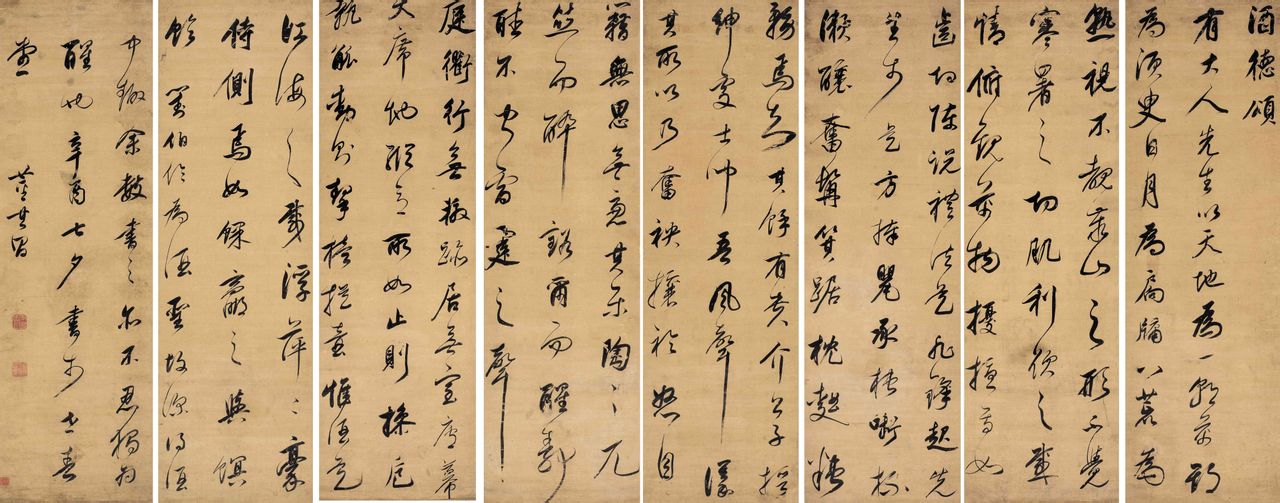 酒德頌
有大人先生以天地為一朝萬期
為須臾日月為扃牖八荒為
熟視不覩泰山之形不覺
寒暑之切肌利欲之感
情俯觀萬物擾擾焉如
齒切陳說禮法是非鋒起先
生於是方捧甖承槽銜杯
漱醪奮髯箕踞枕麴藉
務焉知其餘有貴介公子搢
紳處士聞吾風聲議
其所以乃奮袂攘衿怒目
糟無思無慮其樂陶〻兀
然而醉豁爾而醒靜
聽不聞雷霆之聲
庭衢行無轍跡居無室廬幕
天席地縱意所如止則操卮
執觚動則挈榼提壺惟酒是
江海之載浮萍二豪
侍側焉如蜾蠃之與螟
蛉 劉伯倫為酒聖故深得酒
中趣余數書之亦不忍獨為
醒也辛酉七夕書於世春
堂 董其昌